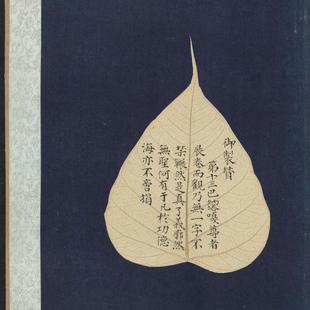 御製贊
第十三巴𡀔嘎尊者
展卷而觀乃無一字不
禁囅然是真了義廓然
無聖何有于凡於功德
海亦不啻損